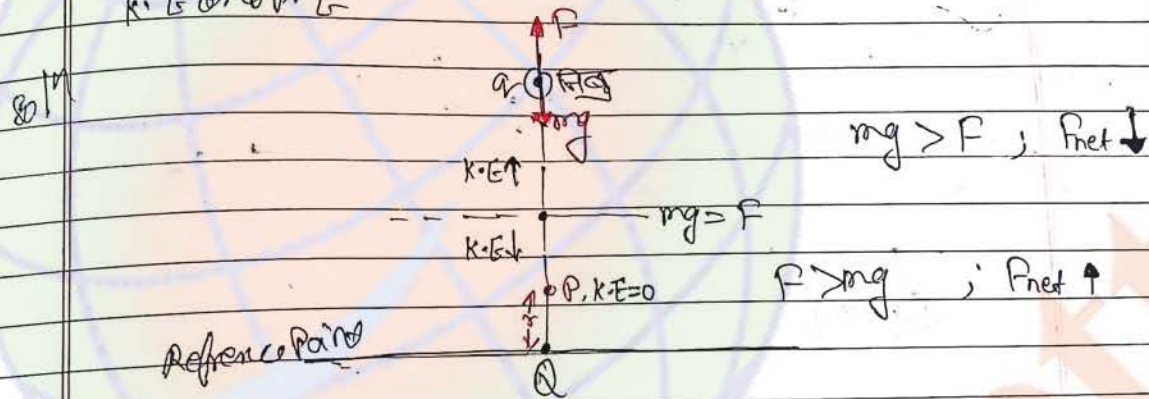 K.E and P.E
Soln
F
q
mg
mg > F ; Fnet ↓
K.E↑
mg = F
K.E↓
P, K.E=0
F > mg ; Fnet ↑
r
Refrence Point
Q